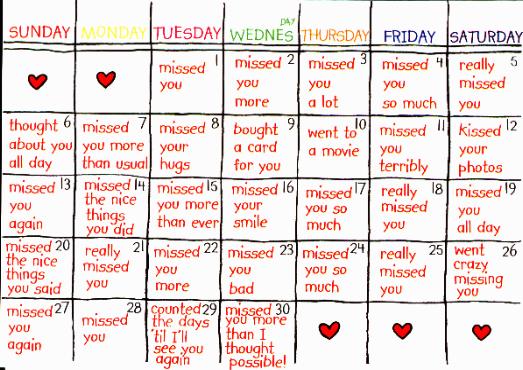 SUNDAY MONDAY TUESDAY WEDNES DAY THURSDAY FRIDAY SATURDAY
1
missed
you
2
missed
you
more
3
missed
you
a lot
4
missed
you
so much
5
really
missed
you
6
thought
about you
all day
7
missed
you more
than usual
8
missed
your
hugs
9
bought
a card
for you
10
went to
a movie
11
missed
you
terribly
12
kissed
your
photos
13
missed
you
again
14
missed
the nice
things
you did
15
missed
you more
than ever
16
missed
your
smile
17
missed
you so
much
18
really
missed
you
19
missed
you
all day
20
missed
the nice
things
you said
21
really
missed
you
22
missed
you
more
23
missed
you
bad
24
missed
you so
much
25
really
missed
you
26
went
crazy
missing
you
27
missed
you
again
28
missed
you
29
counted
the days
'til I'll
see you
again
30
missed
you more
than I
thought
possible!